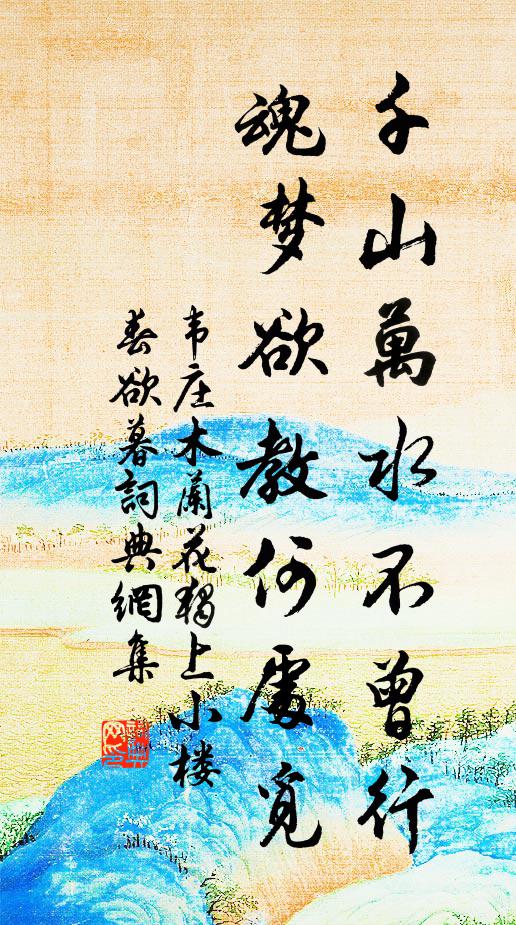 千山萬水不曾行
魂梦欲教何處覓
韦庄木蘭花獨上小楼
春欲暮詞典網集